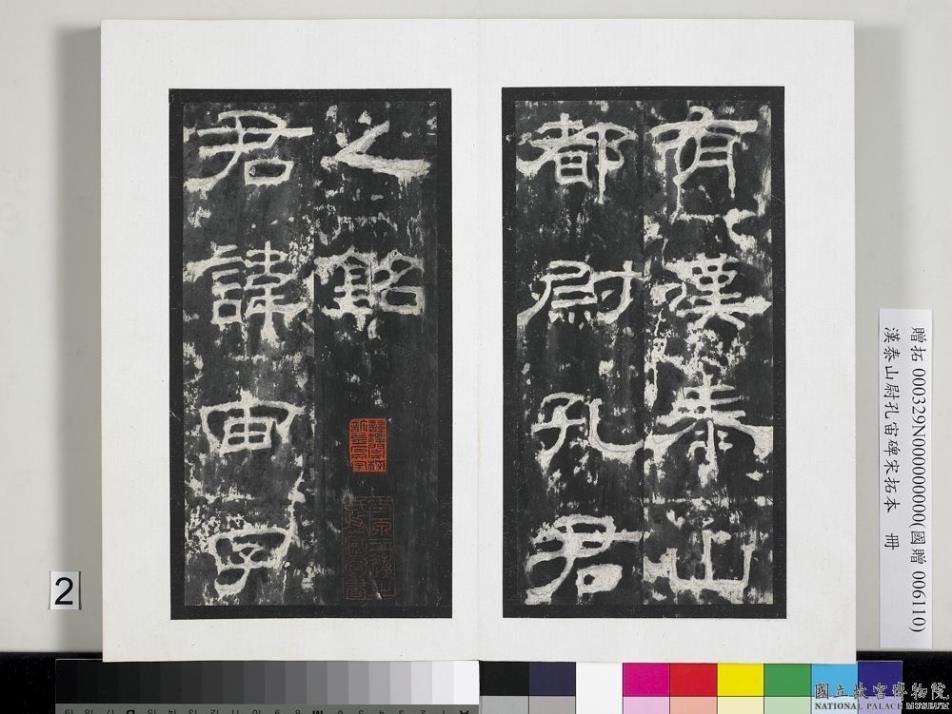 有漢泰山
都尉孔君
之銘
君諱宙字
贈拓 000329N000000000(國贈 006110)
漢泰山尉孔宙碑宋拓本 冊
2
國立故宮博物院
NATIONAL PALACE MUSEUM